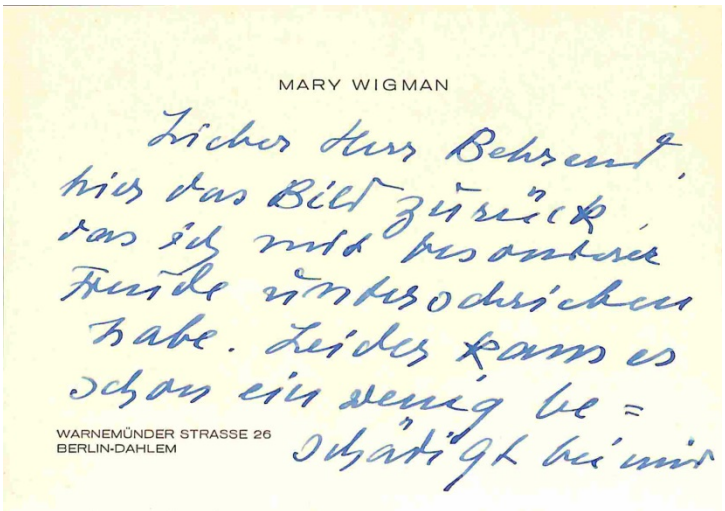 MARY WIGMAN
Lieber Herr Behrend,
hier das Bild zurück,
das ich mit besonderer
Freude unterschrieben
habe. Leider kam es
schon ein wenig be=
schädigt bei mir
WARNEMÜNDER STRASSE 26
BERLIN-DAHLEM